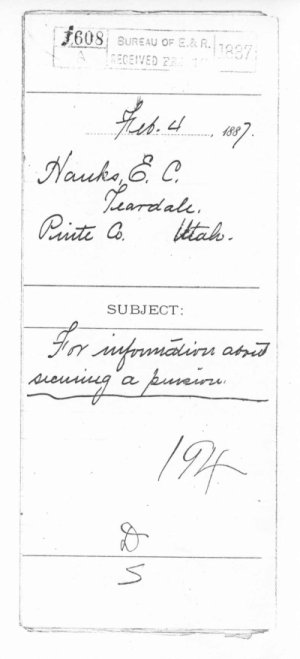 1608
A
BUREAU OF E. & R.
RECEIVED
1887
Feb. 4, 1887.
Hanks, E. C.
Teardale.
Piute Co. Utah.
SUBJECT:
For information about
securing a pension.
194
D
S